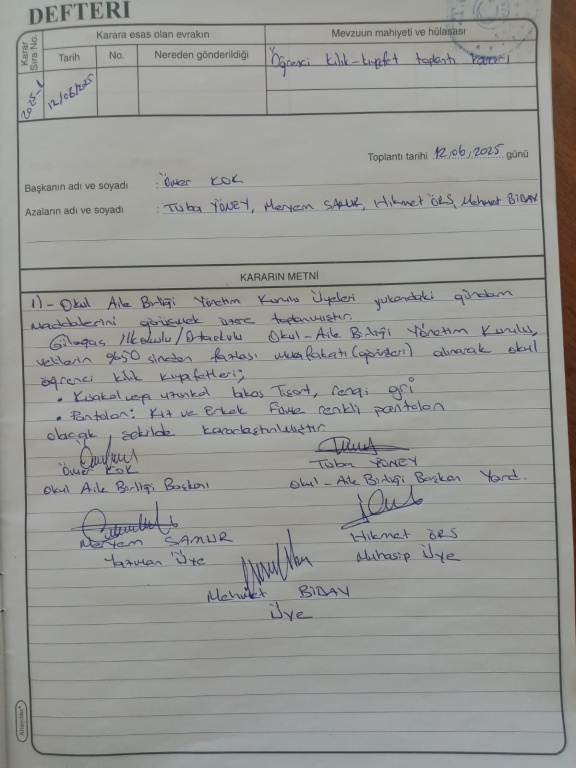 DEFTERİ
Karar Sıra No.
Karara esas olan evrakın
Mevzuun mahiyeti ve hülasası
Tarih
No.
Nereden gönderildiği
Öğrenci kılık-kıyafet toplantı kararı
2025-1
12/06/2025
Toplantı tarihi 12.06.2025 günü
Başkanın adı ve soyadı : Ömer KOK
Azaların adı ve soyadı : Tuba YÖNEY, Meryem SAMUR, Hikmet ÖRS, Mehmet BİDAV
KARARIN METNİ
1)- Okul Aile Birliği Yönetim Kurulu Üyeleri yukarıdaki gündem
maddelerini görüşmek üzere toplanmıştır.
İlkokulu/Ortaokulu Okul-Aile Birliği Yönetim Kurulu,
velilerin %50 sinden fazlası muvafakatı (gönderi) alınarak okul
öğrenci kılık kıyafetleri;
• Kısakol veya uzunkol lakos Tişört, rengi gri
• Pantolon: Kız ve Erkek Füme renkli pantolon
olacak şekilde kararlaştırılmıştır.
Ömer KOK
Tuba YÖNEY
Okul Aile Birliği Başkanı
Okul-Aile Birliği Başkan Yard.
Meryem SAMUR
Hikmet ÖRS
Yazman Üye
Muhasip Üye
Mehmet BİDAV
Üye